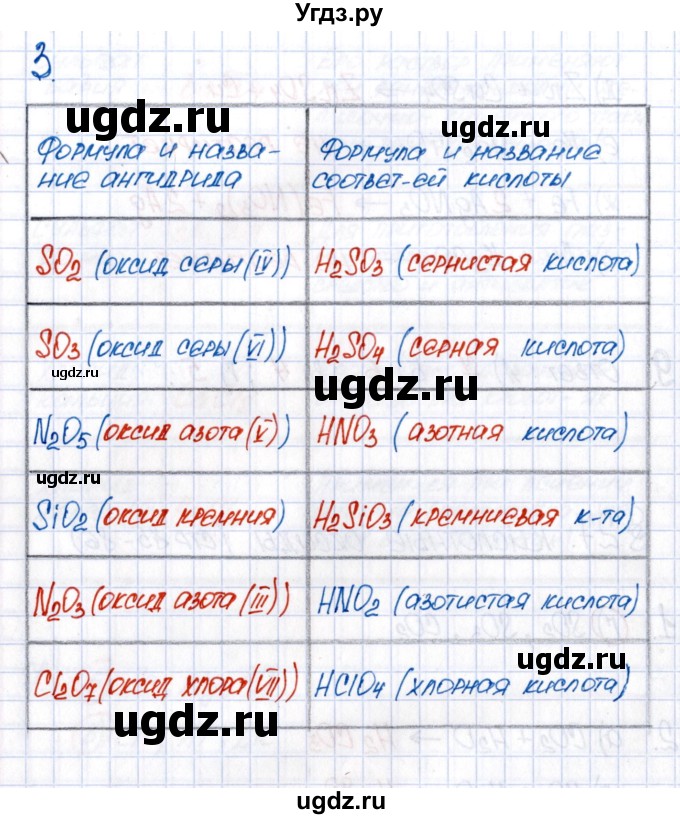 Угдз.ру
3.
ugdz.ru
ugdz.ru
Формула и назва-
ние ангидрида
Формула и название
соответ-ей кислоты
SO₂ (оксид серы (IV))
H₂SO₃ (сернистая кислота)
SO₃ (оксид серы (VI))
H₂SO₄ (серная кислота)
ugdz.ru
ugdz.ru
N₂O₅ (оксид азота (V))
HNO₃ (азотная кислота)
ugdz.ru
SiO₂ (оксид кремния)
H₂SiO₃ (кремниевая к-та)
N₂O₃ (оксид азота (III))
HNO₂ (азотистая кислота)
ugdz.ru
Cl₂O₇ (оксид хлора (VII))
HClO₄ (хлорная кислота)
ugdz.ru
ugdz.ru